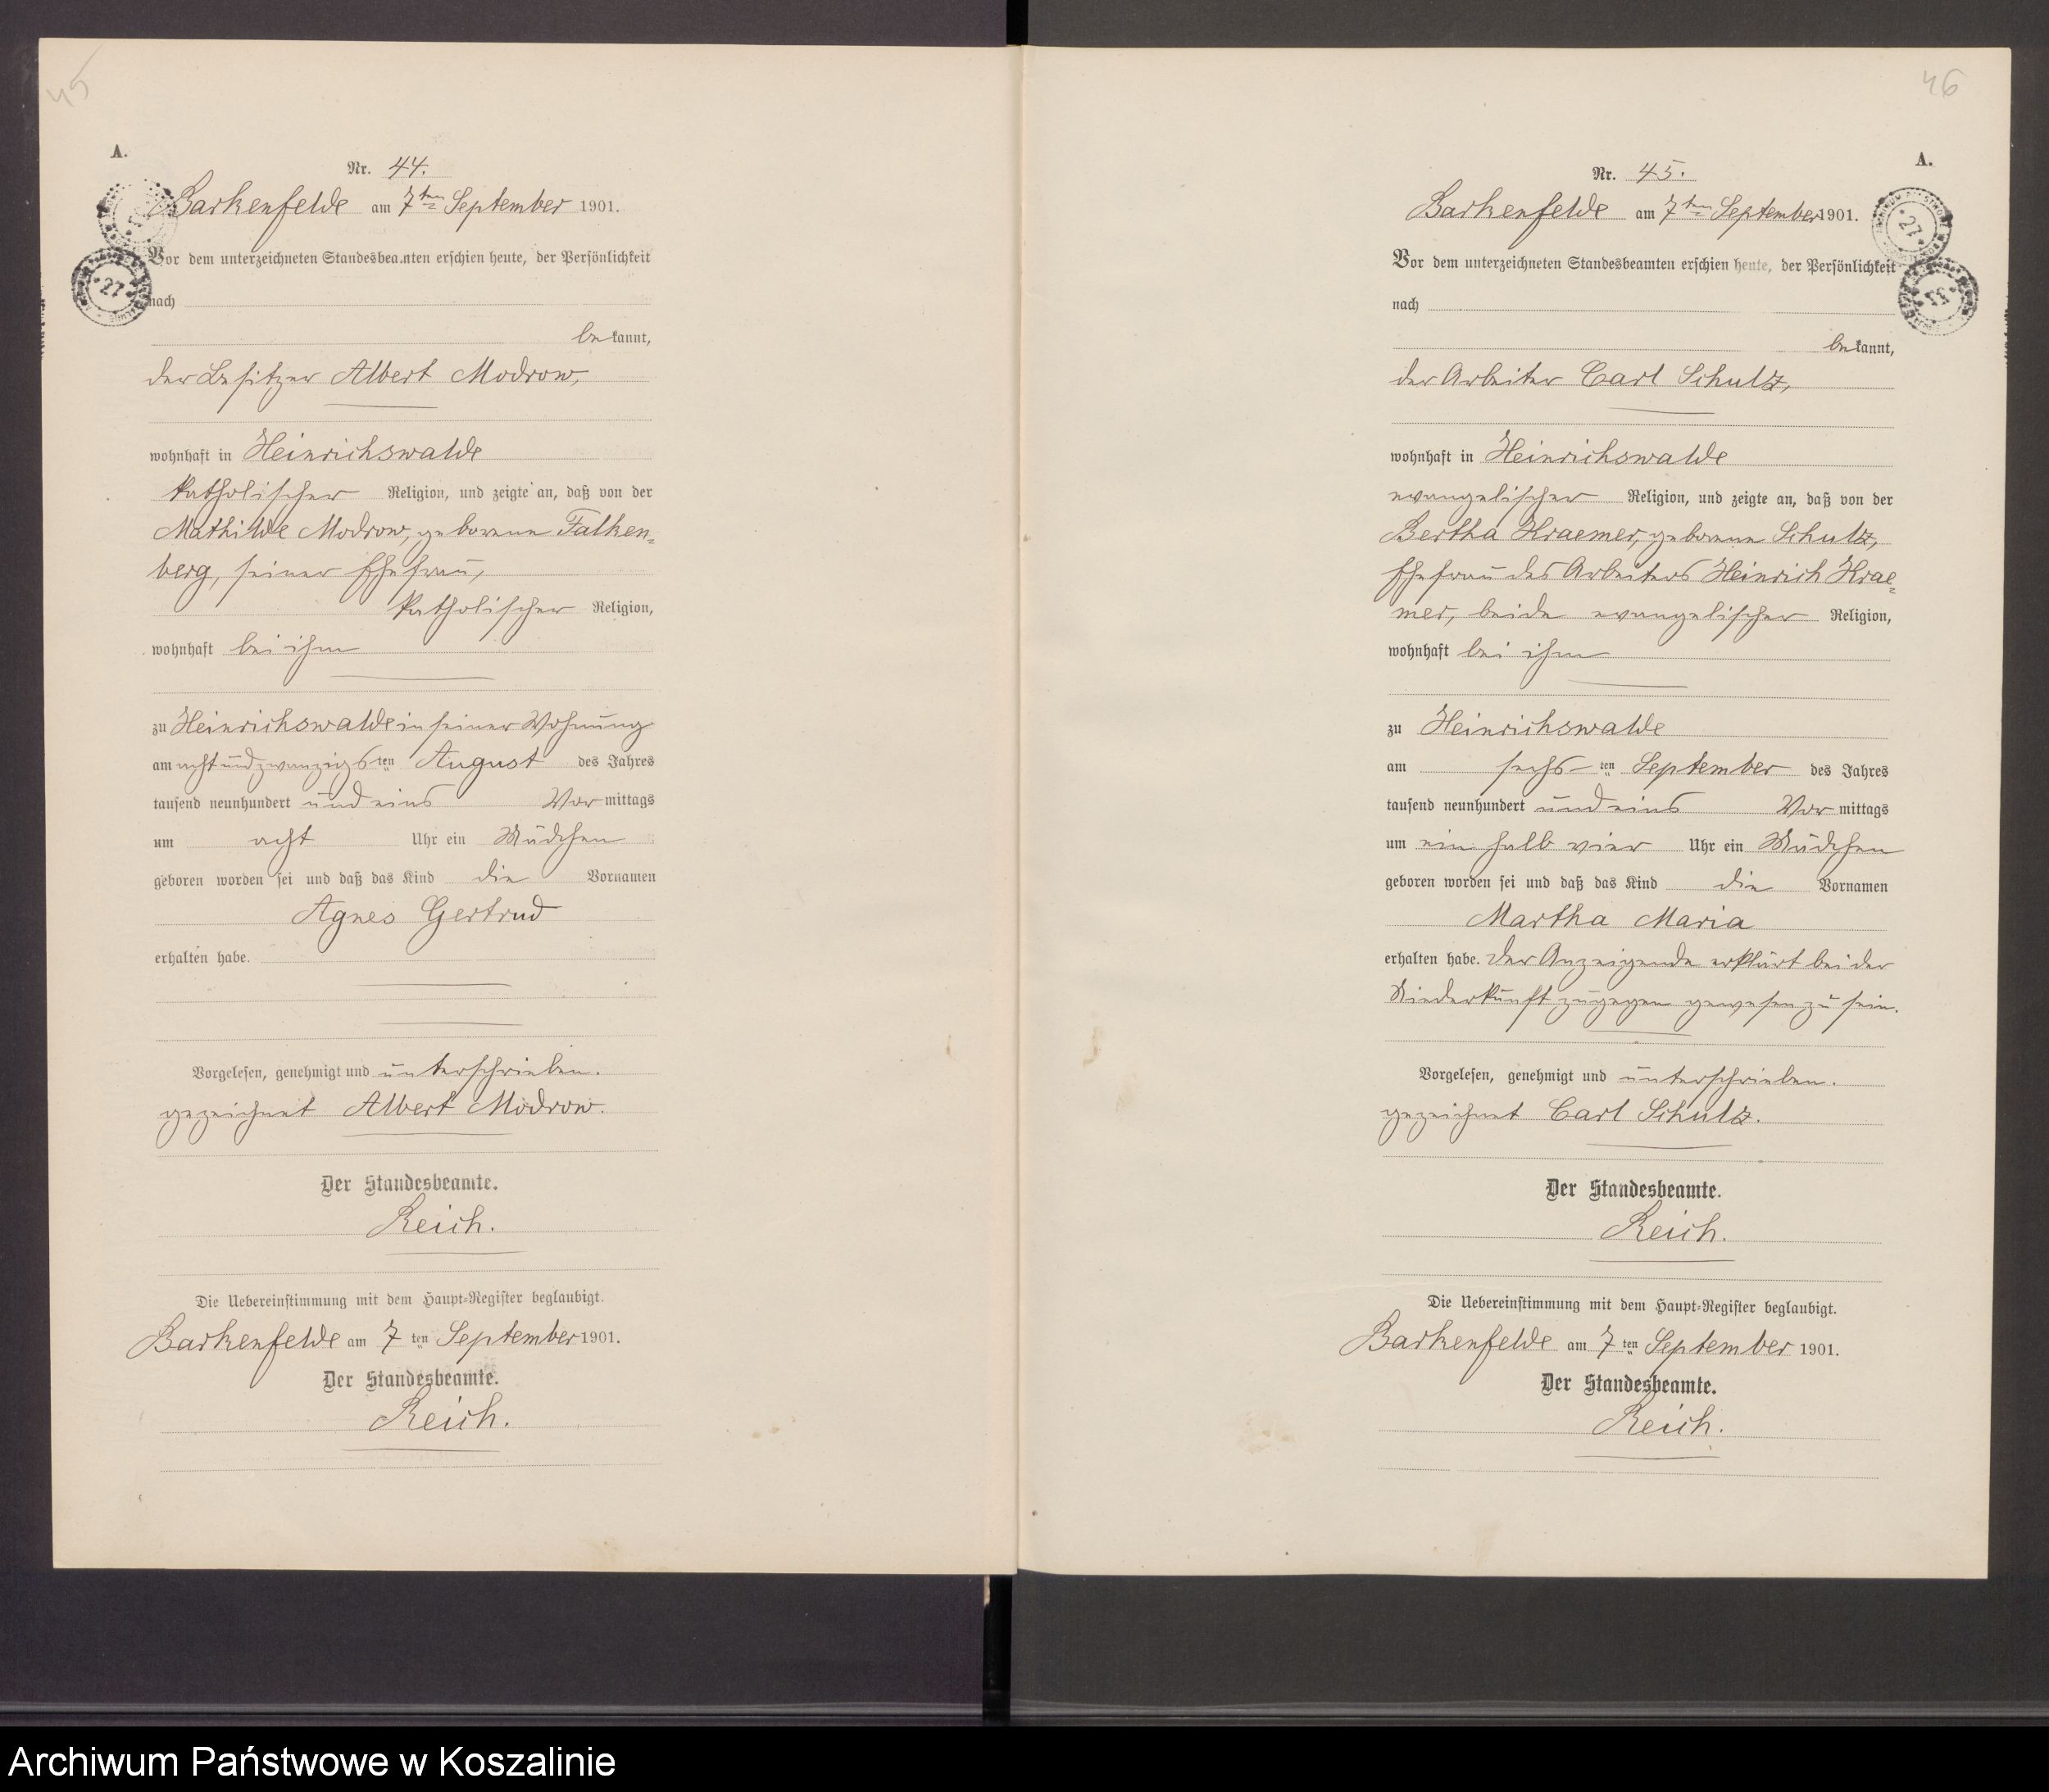 45
A.
Nr. 44.
Barkenfelde am 7ten September 1901.
Vor dem unterzeichneten Standesbeamten erschien heute, der Persönlichkeit
nach
bekannt,
der Besitzer Albert Modrow,
wohnhaft in Heinrichswalde
katholischer Religion, und zeigte an, daß von der
Mathilde Modrow, geborene Falken-
berg, seiner Ehefrau,
katholischer Religion,
wohnhaft bei ihm
zu Heinrichswalde in seiner Wohnung
am achtundzwanzigsten August des Jahres
tausend neunhundert und eins Vor mittags
um acht Uhr ein Mädchen
geboren worden sei und daß das Kind die Vornamen
Agnes Gertrud
erhalten habe.
Vorgelesen, genehmigt und unterschrieben.
gezeichnet Albert Modrow.
Der Standesbeamte.
Reich.
Die Uebereinstimmung mit dem Haupt-Register beglaubigt.
Barkenfelde am 7ten September 1901.
Der Standesbeamte.
Reich.
27
46
A.
Nr. 45.
Barkenfelde am 7ten September 1901.
Vor dem unterzeichneten Standesbeamten erschien heute, der Persönlichkeit
nach
bekannt,
der Arbeiter Carl Schulz,
wohnhaft in Heinrichswalde
evangelischer Religion, und zeigte an, daß von der
Bertha Kraemer, geborene Schulz,
Ehefrau des Arbeiters Heinrich Krae-
mer, beide evangelischer Religion,
wohnhaft bei ihm
zu Heinrichswalde
am sechs-ten September des Jahres
tausend neunhundert und eins Vor mittags
um ein halb vier Uhr ein Mädchen
geboren worden sei und daß das Kind die Vornamen
Martha Maria
erhalten habe. Der Anzeigende erklärt bei der
Niederkunft zugegen gewesen zu sein.
Vorgelesen, genehmigt und unterschrieben.
gezeichnet Carl Schulz.
Der Standesbeamte.
Reich.
Die Uebereinstimmung mit dem Haupt-Register beglaubigt.
Barkenfelde am 7ten September 1901.
Der Standesbeamte.
Reich.
27
Archiwum Państwowe w Koszalinie